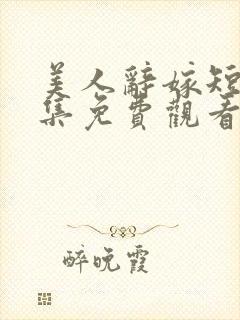 美人辭嫁短
集免費觀看
醉晚霞